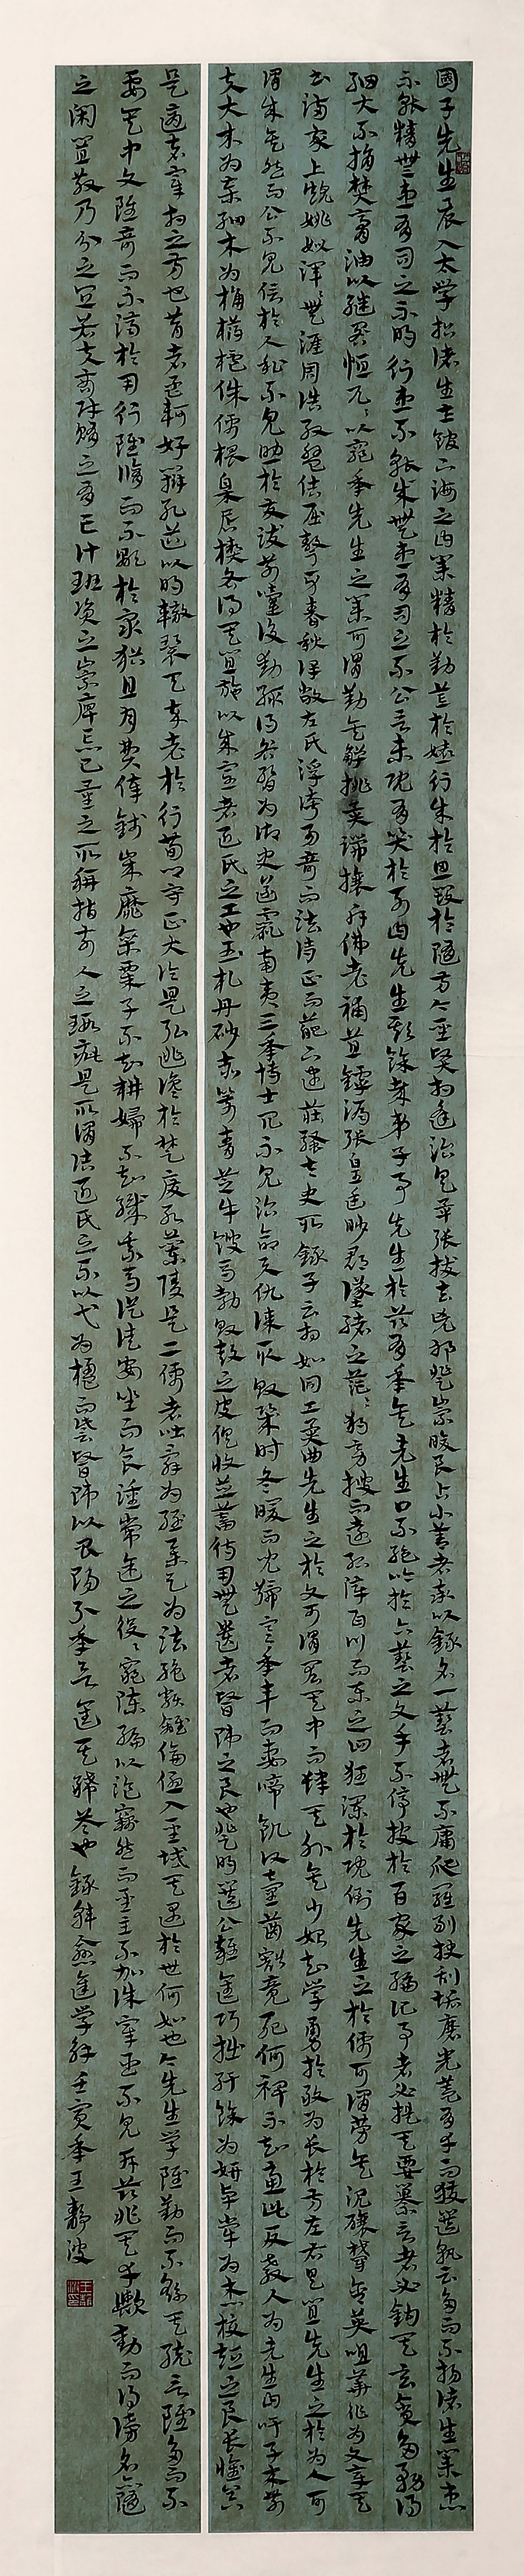 國子先生晨入太学招诸生立館下誨之曰業精於勤荒於嬉行成於思毁於随方今聖贤相逢治具畢张拔去兇邪登崇畯良占小善者率以錄名一藝者無不庸爬羅剔抉刮垢磨光蓋有幸而獲選孰云多而不揚诸生業患
不能精無患有司之不明行患不能成無患有司之不公言未既有笑於列曰先生欺余哉弟子事先生於兹有年矣先生口不絶吟於六藝之文手不停披於百家之編記事者必提其要纂言者必鉤其玄貪多務得
細大不捐焚膏油以繼晷恒兀々以窮年先生之業可謂勤矣觝排異端攘斥佛老補苴罅漏張皇幽眇尋墜緒之茫々獨旁搜而遠紹障百川而東之迴狂瀾於既倒先生之於儒可謂勞矣沉浸醲郁含英咀華作為文章其
書滿家上規姚姒渾々無涯周誥殷盤佶屈聱牙春秋謹嚴左氏浮誇易奇而法詩正而葩下逮莊騷太史所錄子雲相如同工異曲先生之於文可謂閎其中而肆其外矣少始知学勇於敢為長於方左右具宜先生之於為人可
謂成矣然而公不見信於人私不見助於友跋前躓後動輒得咎暫為御史遂竄南夷三年博士冗不見治命與仇謀取敗幾時冬暖而兒號寒年豐而妻啼飢頭童齒豁竟死何裨不知慮此反教人為先生曰吁子來前
夫大木為杗細木為桷欂櫨侏儒椳闑扂楔各得其宜施以成室者匠氏之工也玉札丹砂赤箭青芝牛溲馬勃敗鼓之皮俱收並蓄待用無遺者醫師之良也登明選公雜進巧拙紆餘為妍卓犖為傑校短量長惟器
是適者宰相之方也昔者孟軻好辯孔道以明轍環天下卒老於行荀卿守正大論是弘逃讒於楚廢死蘭陵是二儒者吐辭為經舉足為法絶類離倫優入聖域其遇於世何如也今先生学雖勤而不繇其統言雖多而不
要其中文雖奇而不濟於用行雖修而不顯於衆猶且月費俸錢歲靡廩粟子不知耕婦不知織乘馬從徒安坐而食踵常途之役々窺陳編以盜竊然而聖主不加誅宰臣不見斥兹非其幸歟動而得謗名亦隨
之閑置散乃分之宜若夫商財賄之有亡計班資之崇庳忘己量之所稱指前人之瑕疵是所謂詰匠氏之不以杙為楹而訾醫師以昌陽引年欲進其豨苓也 錄韩愈進学解壬寅年王靜波